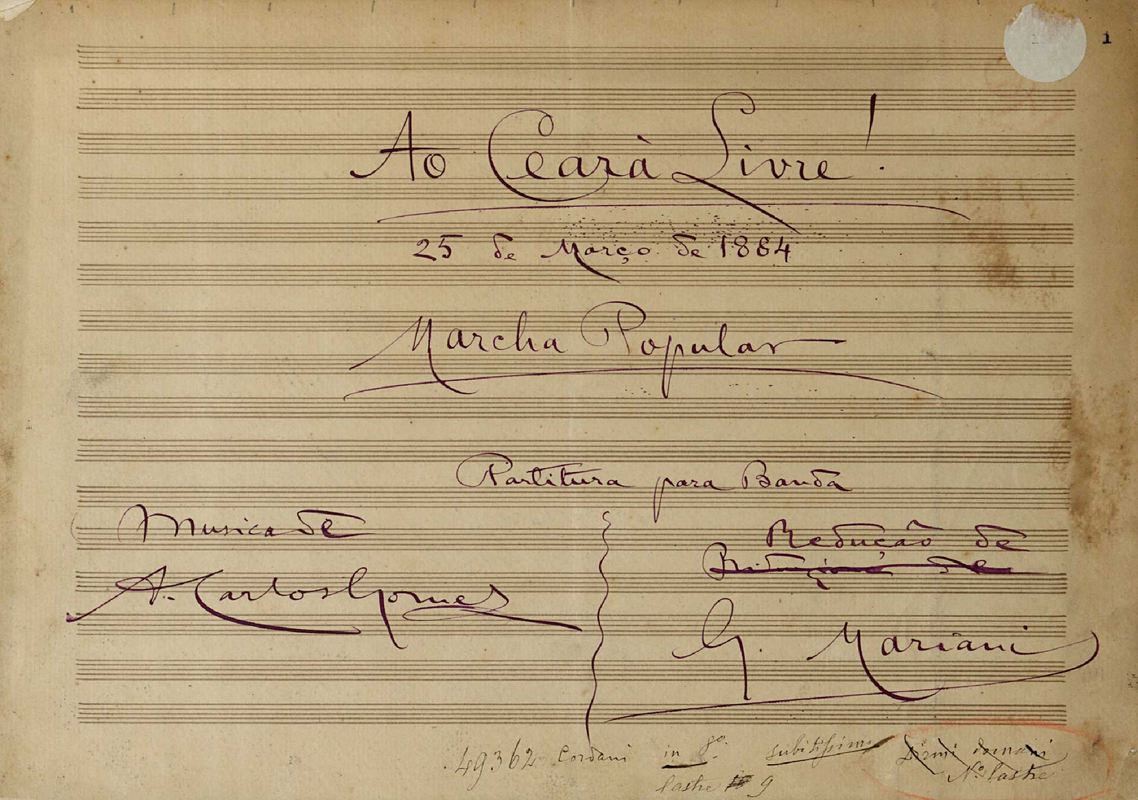 1
Ao Cearà Livre!
25 de Março de 1884
Marcha Popular
Partitura para Banda
Musica de
A. Carlos Gomes
Redução de
G. Mariani
49362 Cordani in 8º subitissimo Dirmi domani
Nº lastre
lastre 9